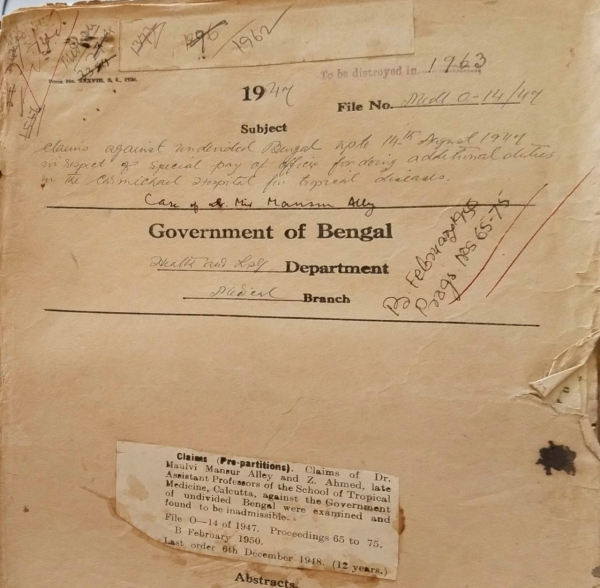 1962
To be distroyed in 1963
1947
File No. Medl O-14/47
Subject
Claims against undivided Bengal upto 14th August 1947
in respect of special pay of officer for doing additional duties
in the Carmichael Hospital for tropical diseases.
Case of Dr. Mansur Ally
Government of Bengal
Health and LSG Department
Medical Branch
B February 1950
Progs. Nos 65-75
Claims (Pre-partitions). Claims of Dr.
Maulvi Mansur Alley and Z. Ahmed, late
Assistant Professors of the School of Tropical
Medicine, Calcutta, against the Government
of undivided Bengal were examined and
found to be inadmissible.
File O—14 of 1947. Proceedings 65 to 75.
B February 1950.
Last order 6th December 1948. (12 years.)
Abstracts.